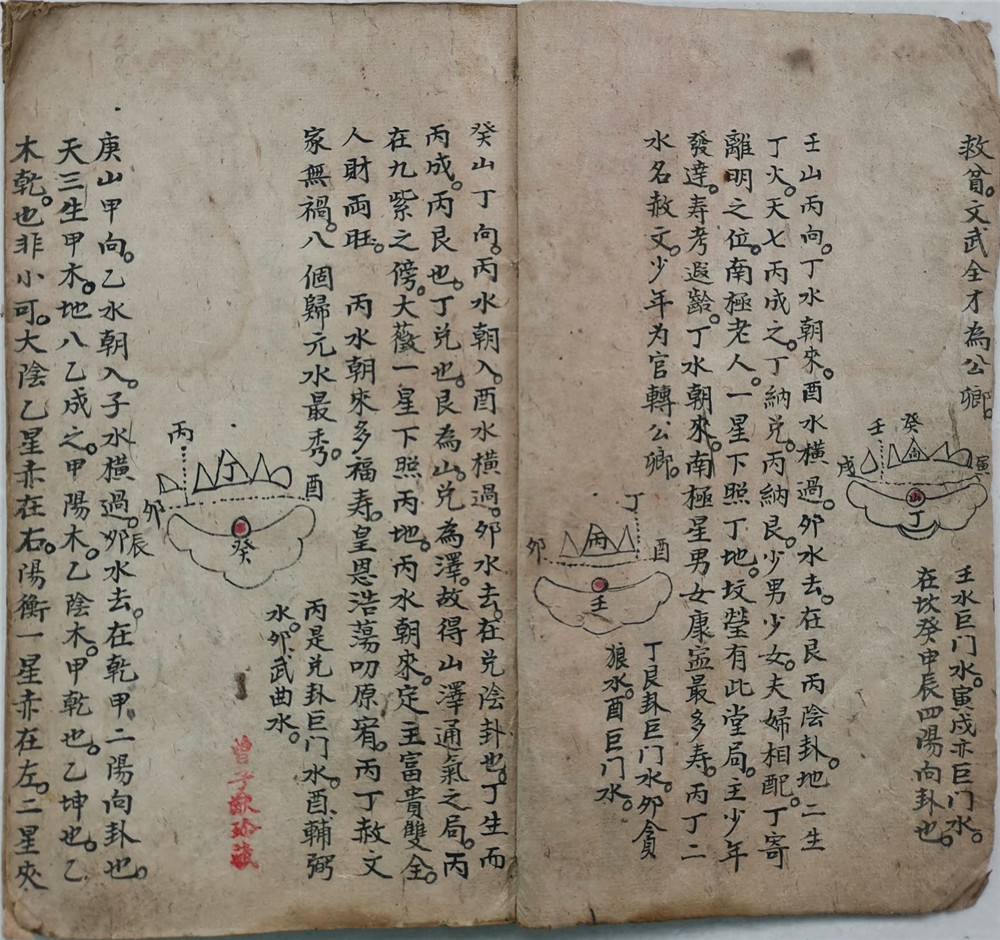 救貧。文武全才為公卿。
癸
壬
向
戌
寅
山
丁
壬水巨門水。寅戌亦巨門水。
在坎癸申辰四陽向卦也。
壬山丙向。丁水朝來。酉水橫過。卯水去。在艮丙陰卦。地二生
丁火。天七丙成之。丁納兌。丙納艮。少男少女。夫婦相配。丁寄
離明之位。南極老人。一星下照丁地。坟瑩有此堂局。主少年
發達。寿考遐齡。丁水朝來。南極星男女康寍最多寿。丙丁二
水名赦文。少年为官轉公卿。
丁
卯
丙
酉
壬
丁艮卦巨門水。卯貪
狼水。酉巨門水。
癸山丁向。丙水朝入。酉水橫過。卯水去。在兌陰卦也。丁生而
丙成。丙艮也。丁兌也。艮為山。兌為澤。故得山澤通氣之局。丙
在九紫之傍。大薇一星下照丙地。丙水朝來。定主富貴雙全。
人財両旺。丙水朝來多福寿。皇恩浩蕩叨原宥。丙丁赦文
家無禍。八個歸元水最秀。
丙
丁
酉
卯
辰
癸
丙是兌卦巨門水。酉輔弼
水。卯武曲水。
曾子珍藏
庚山甲向。乙水朝入。子水橫過。卯水去。在乾甲二陽向卦也。
天三生甲木。地八乙成之。甲陽木。乙陰木。甲乾也。乙坤也。乙
木乾。也非小可。大陰乙星亦在右。陽衡一星亦在左。二星夾